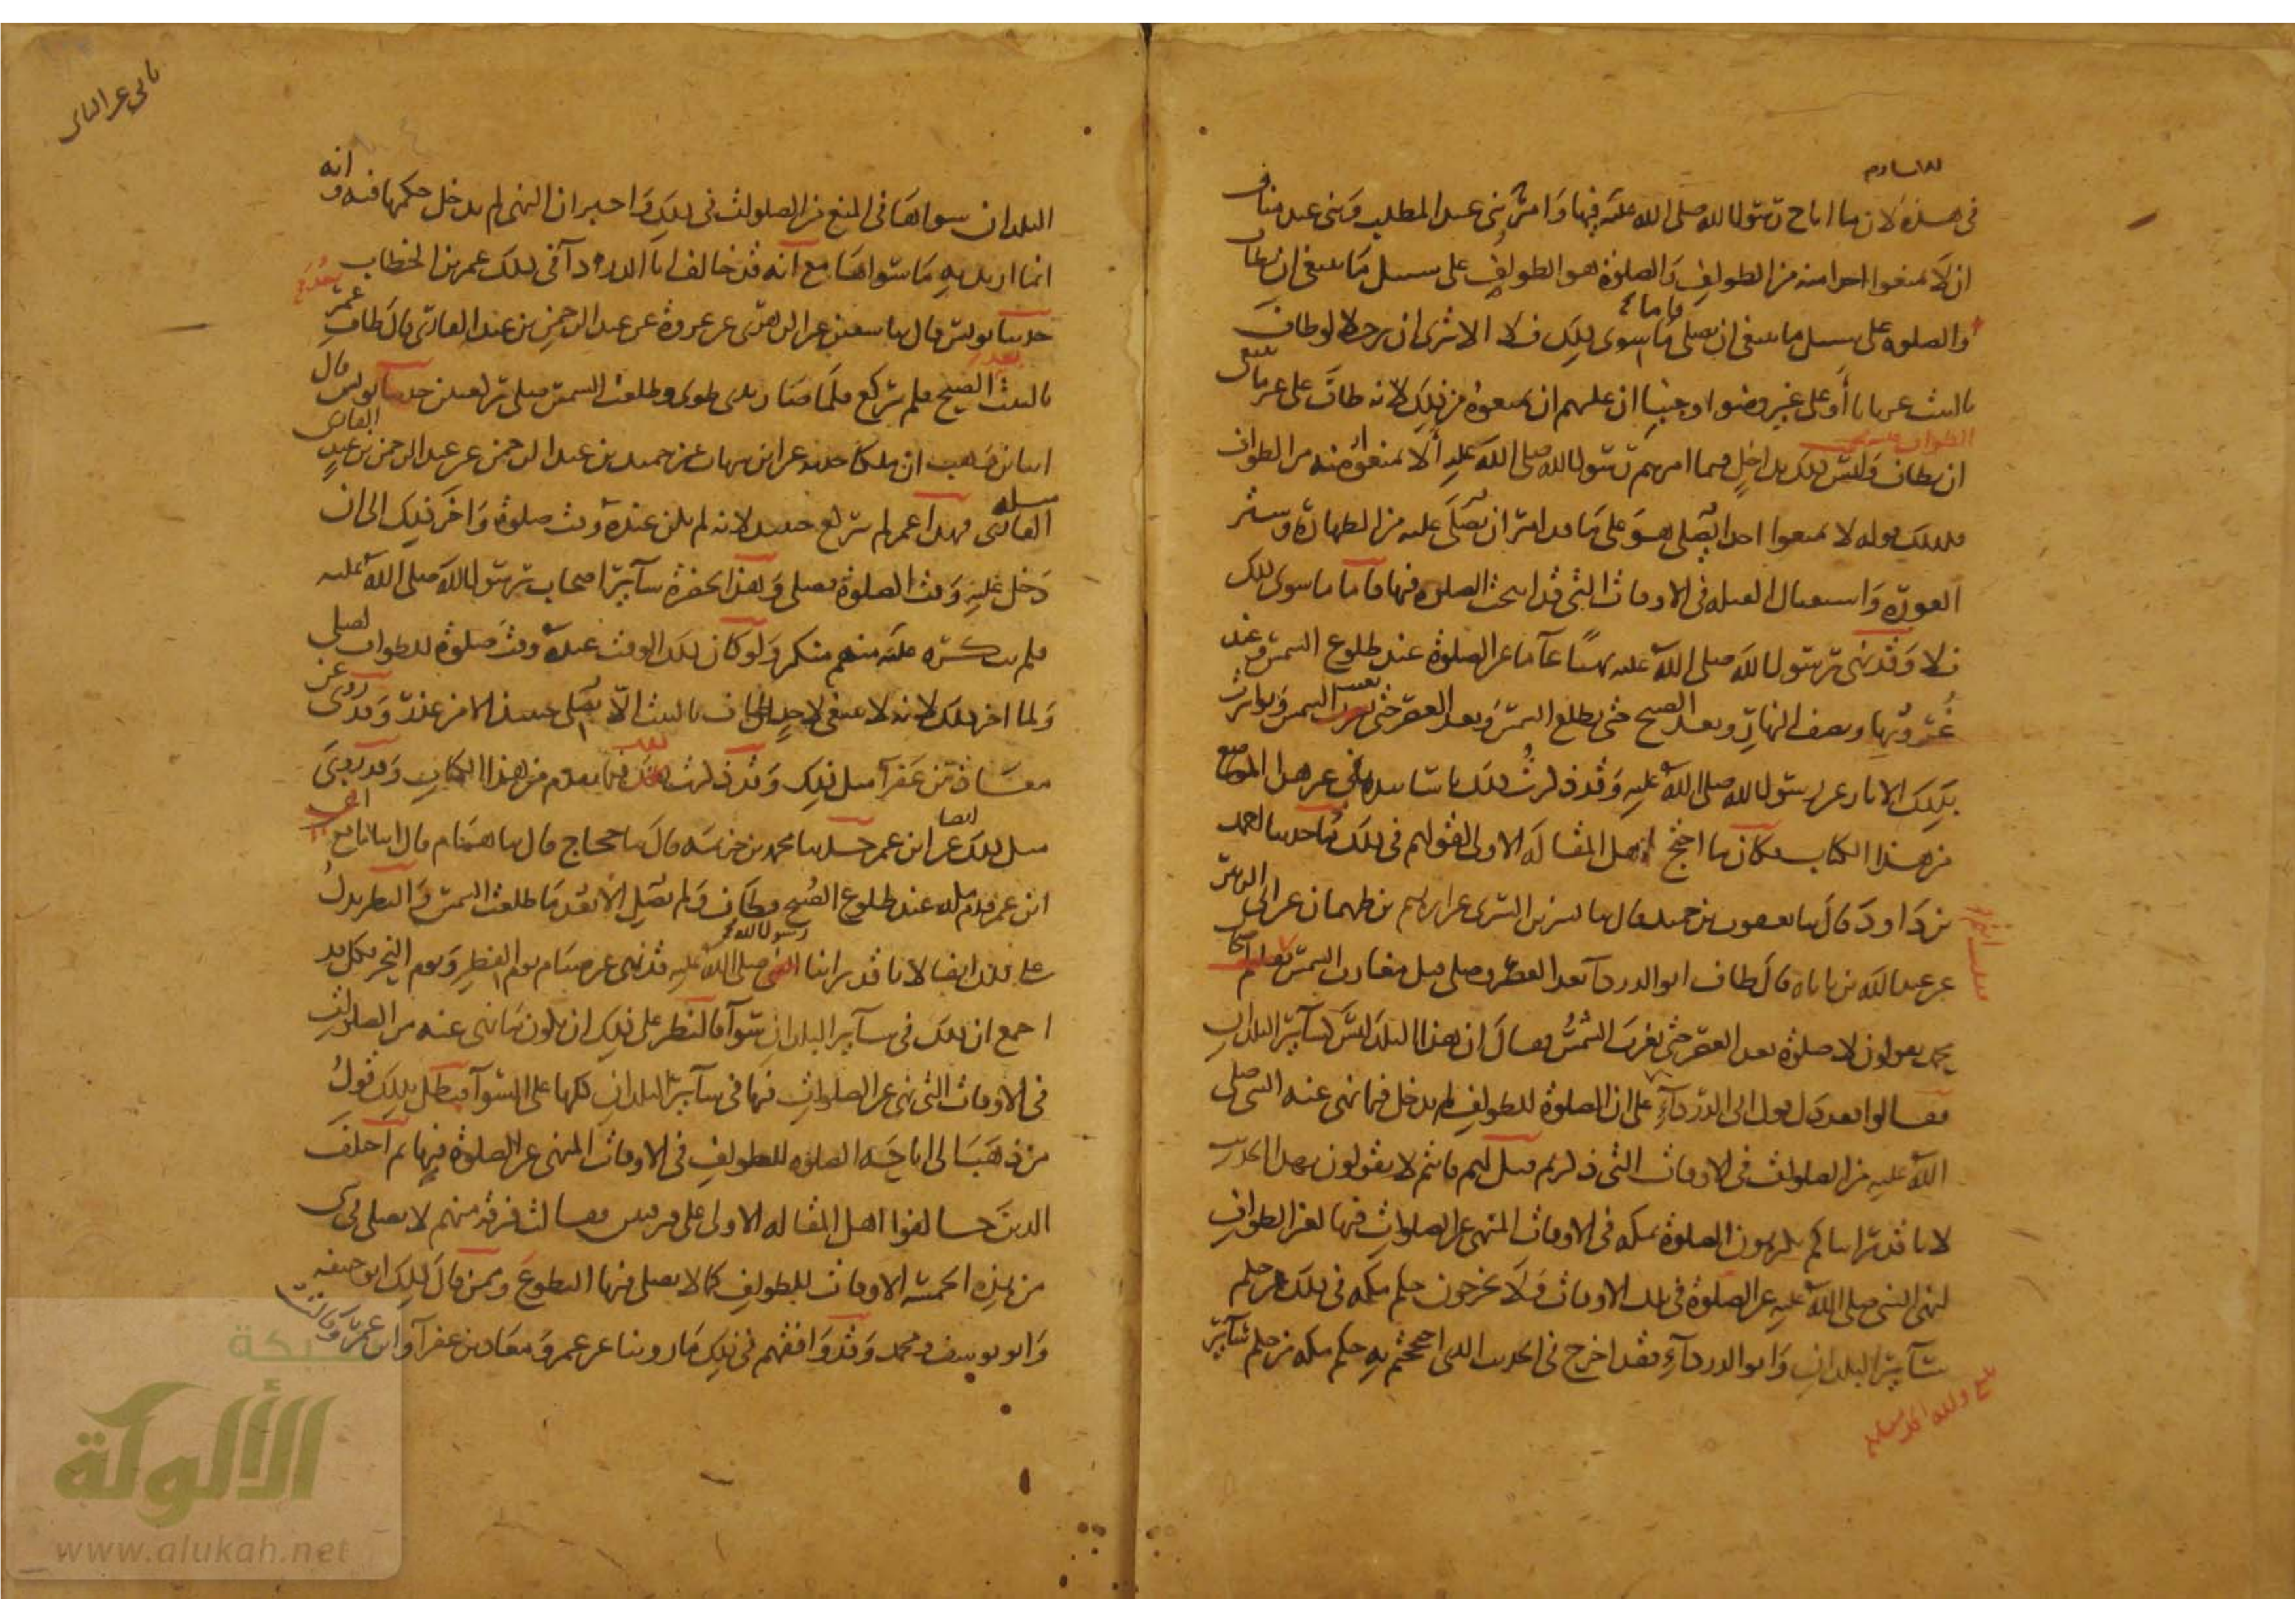 في هذه لان ما اباح رسول الله صلى الله عليه فيها وامر بني عبد المطلب وبني عبد مناف
ان لا يمنعوا احدا منه من الطواف والصلوة هو الطواف على سبيل ما ينبغي ان يطاف
والصلوة على سبيل ما ينبغي ان يصلى فاما ما سوى ذلك فلا الا ترى ان رجلا لو طاف
بالبيت عريانا أو على غير وضوء او جنبا ان عليهم ان يمنعوه من ذلك لانه طاف على غير ما ينبغي
ان يطاف وليس ذلك بداخل فيما امرهم رسول الله صلى الله عليه ألا يمنعوا منه من الطواف
فكذلك قوله لا تمنعوا احدا يصلي هو على ما قد امر ان يصلى عليه من الطهارة وستر
العورة واستقبال القبلة في الاوقات التي قد ابيحت الصلوة فيها فاما ما سوى ذلك
فلا وقد نهى رسول الله صلى الله عليه نهيا عاما عن الصلوة عند طلوع الشمس وعند
غروبها ونصف النهار وبعد الصبح حتى تطلع الشمس وبعد العصر حتى تغيب الشمس وتواترت
بذلك الاثار عن رسول الله صلى الله عليه وقد ذكرت ذلك باسانيده في غير هذا الموضع
من هذا الكتاب فكان ما احتج اهل المقالة الاولى لقولهم في ذلك ما حدثنا احمد
بن داود قال ثنا يعقوب بن حميد قال ثنا بشر بن السري عن ابراهيم بن طهمان عن ابي الزبير
عن عبد الله بن باباه قال طاف ابو الدرداء بعد العصر وصلى قبل مغارب الشمس فقلت انتم اصحاب
محمد يقولون لا صلوة بعد العصر حتى تغرب الشمس فقال ان هذا البلد ليس كسائر البلدان
فقالوا فقد دل قول ابي الدرداء على ان الصلوة للطواف لم يدخل فيما نهى عنه النبي صلى
الله عليه من الصلوات في الاوقات التي ذكرتم قيل لهم فانتم لا تقولون بهذا الحديث
لانا قد رايناكم تكرهون الصلوة بمكة في الاوقات المنهي عن الصلوات فيها لغير الطواف
لنهي النبي صلى الله عليه عن الصلوة في تلك الاوقات ولا تخرجون حكم مكة في ذلك من حكم
سائر البلدان وابو الدرداء فقد اخرج في الحديث الذي احتججتم به حكم مكة من حكم سائر
البلدان سواها في المنع من الصلوات في ذلك واخبر ان النهي لم يدخل حكمها فيه وانه
انما اريد به ما سواها مع انه قد خالف ابا الدرداء في ذلك عمر بن الخطاب
حدثنا يونس قال ثنا سفين عن الزهري عن عروة عن عبد الرحمن بن عبد القاري قال طاف عمر
بالبيت بعد الصبح فلم يركع فلما صار بذي طوى وطلعت الشمس صلى ركعتين حدثنا يونس قال
انبا ابن وهب ان ملكا حدثه عن ابن شهاب عن حميد بن عبد الرحمن عن عبد الرحمن بن عبد
القاري مثله فهذا عمر لم يركع حينئذ لانه لم يكن عنده وقت صلوة واخر ذلك الى ان
دخل عليه وقت الصلوة فصلى وهذا بحضرة سائر اصحاب رسول الله صلى الله عليه
فلم ينكره عليه منهم منكر ولو كان ذلك الوقت عنده وقت صلوة للطواف لصلى
ولما اخر ذلك لانه لا ينبغي لاحد طاف بالبيت الا يصلي حينئذ الا من عذر وقد روى عن
معاذ بن عفرآ مثل ذلك وقد ذكرت ذلك فيما تقدم من هذا الكتاب وقد روي
مثل ذلك ايضا عن ابن عمر حدثنا محمد بن خزيمة قال ثنا حجاج قال ثنا همام قال انبا نافع ان
ابن عمر قدم مكة عند طلوع الصبح فطاف ولم يصل الا بعد ما طلعت الشمس والنظر يدل
على ذلك ايضا لانا قد راينا رسول الله صلى الله عليه قد نهى عن صيام يوم الفطر ويوم النحر فكل قد
اجمع ان ذلك في سائر البلدان سوآ فالنظر على ذلك ان يكون ما نهي عنه من الصلوات
في الاوقات التي نهي عن الصلوات فيها في سائر البلدان كلها على السوآ فبطل بذلك قول
من ذهب الى اباحة الصلوة للطواف في الاوقات المنهي عن الصلوة فيها ثم اختلف
الذين خالفوا اهل المقالة الاولى على فرقتين فقالت فرقة منهم لا يصلى في شي
من هذه الخمسة الاوقات للطواف كما لا يصلى فيها التطوع وممن قال ذلك ابو حنيفة
وابو يوسف ومحمد وقد وافقهم في ذلك ما روينا عن عمر ومعاذ بن عفرآ وابن عمر وقالت
شبكة
الألوكة
www.alukah.net